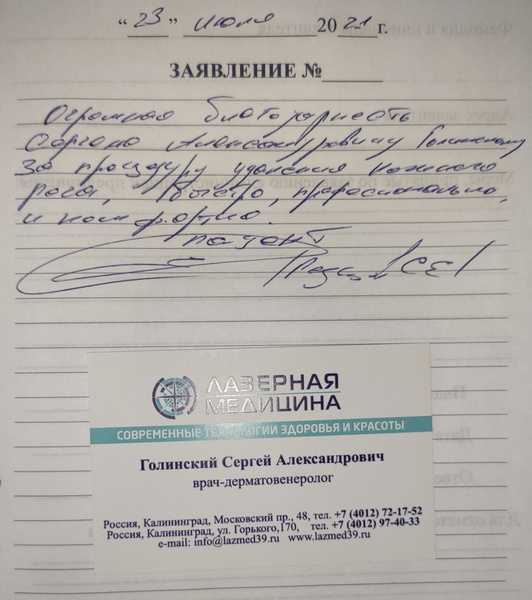 “ 23 ” июля 2021 г.
ЗАЯВЛЕНИЕ №
Огромная благодарность
Сергею Александровичу Голинскому
за процедуру удаления кожного
рога, быстро, професионально,
и комфортно.
ЛАЗЕРНАЯ
МЕДИЦИНА
СОВРЕМЕННЫЕ ТЕХНОЛОГИИ ЗДОРОВЬЯ И КРАСОТЫ
Голинский Сергей Александрович
врач-дерматовенеролог
Россия, Калининград, Московский пр., 48, тел. +7 (4012) 72-17-52
Россия, Калининград, ул. Горького,170, тел. +7 (4012) 97-40-33
e-mail: info@lazmed39.ru www.lazmed39.ru